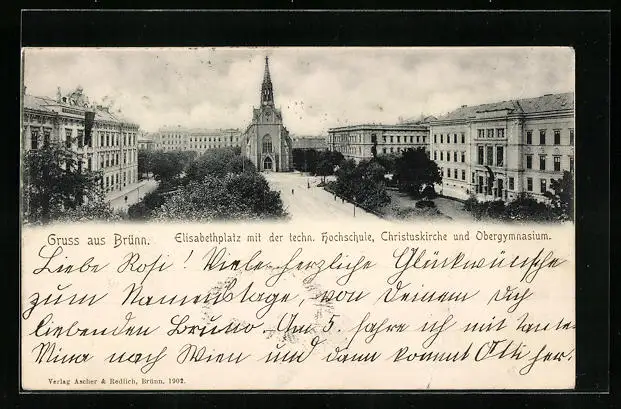 Gruss aus Brünn.
Elisabethplatz mit der techn. Hochschule, Christuskirche und Obergymnasium.
Liebe Rosi! Viele herzliche Glückwünsche
zum Namenstage, von Deinem Dich
liebenden Bruno. Am 5. fahre ich mit Tante
Mina nach Wien und dann kommt Otti her.
Verlag Ascher & Redlich, Brünn. 1902.